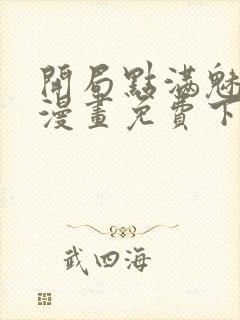 開局點滿魅
漫畫免費下
武四海